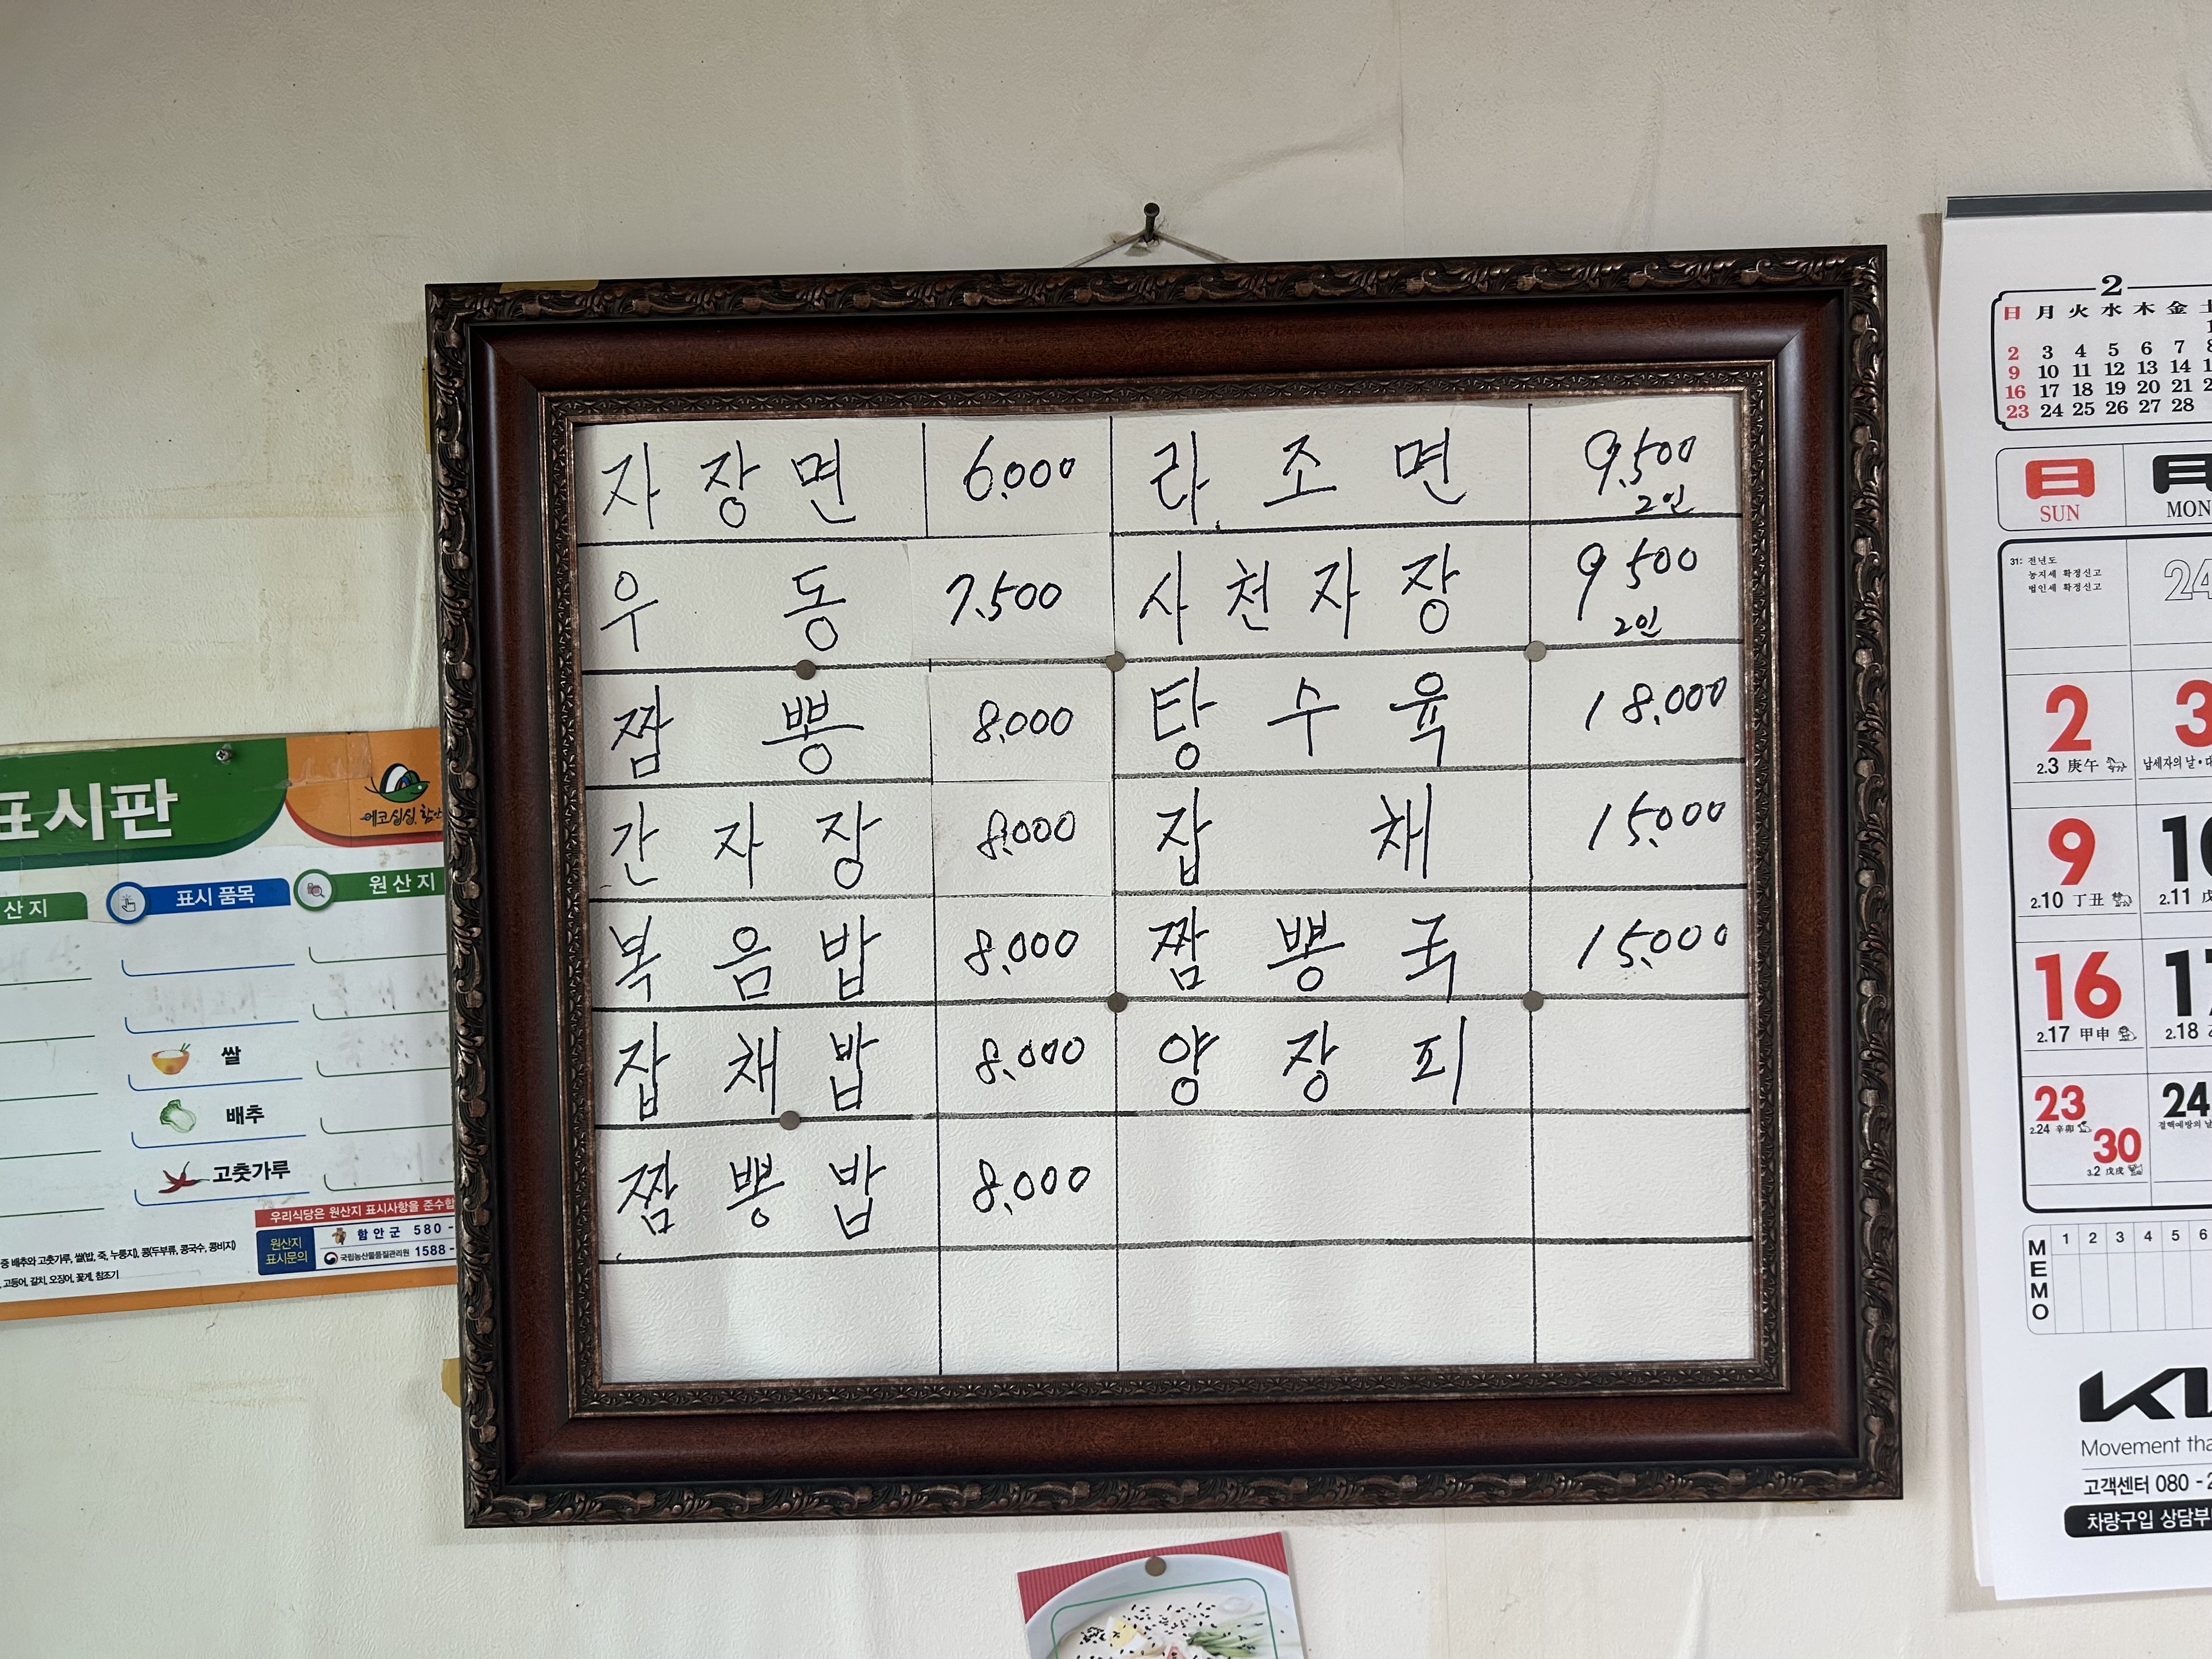 자장면 6,000 라조면 9,500
2인
우동 7,500 사천자장 9,500
2인
짬뽕 8,000 탕수육 18,000
간자장 8,000 잡채 15,000
복음밥 8,000 짬뽕국 15,000
잡채밥 8,000 양장피
짬뽕밥 8,000
표시판
에코싱싱 함안
산지 표시 품목 원산지
쌀
배추
고춧가루
우리식당은 원산지 표시사항을 준수합
원산지
표시문의
함안군 580-
국립농산물품질관리원 1588-
중 배추와 고춧가루, 쌀(밥, 죽, 누룽지), 콩(두부류, 콩국수, 콩비지)
고등어, 갈치, 오징어, 꽃게, 참조기
2
日 月 火 水 木 金
2 3 4 5 6 7
9 10 11 12 13 14
16 17 18 19 20 21
23 24 25 26 27 28
日 月
SUN MON
31: 전년도
농지세 확정신고
법인세 확정신고
24
2 3
2.3 庚午 납세자의 날
9 10
2.10 丁丑 2.11
16 17
2.17 甲申 2.18
23 30 24
2.24 辛卯 결핵예방의 날
3.2 戊戌
MEMO
1 2 3 4 5 6
KI
Movement tha
고객센터 080-2
차량구입 상담부